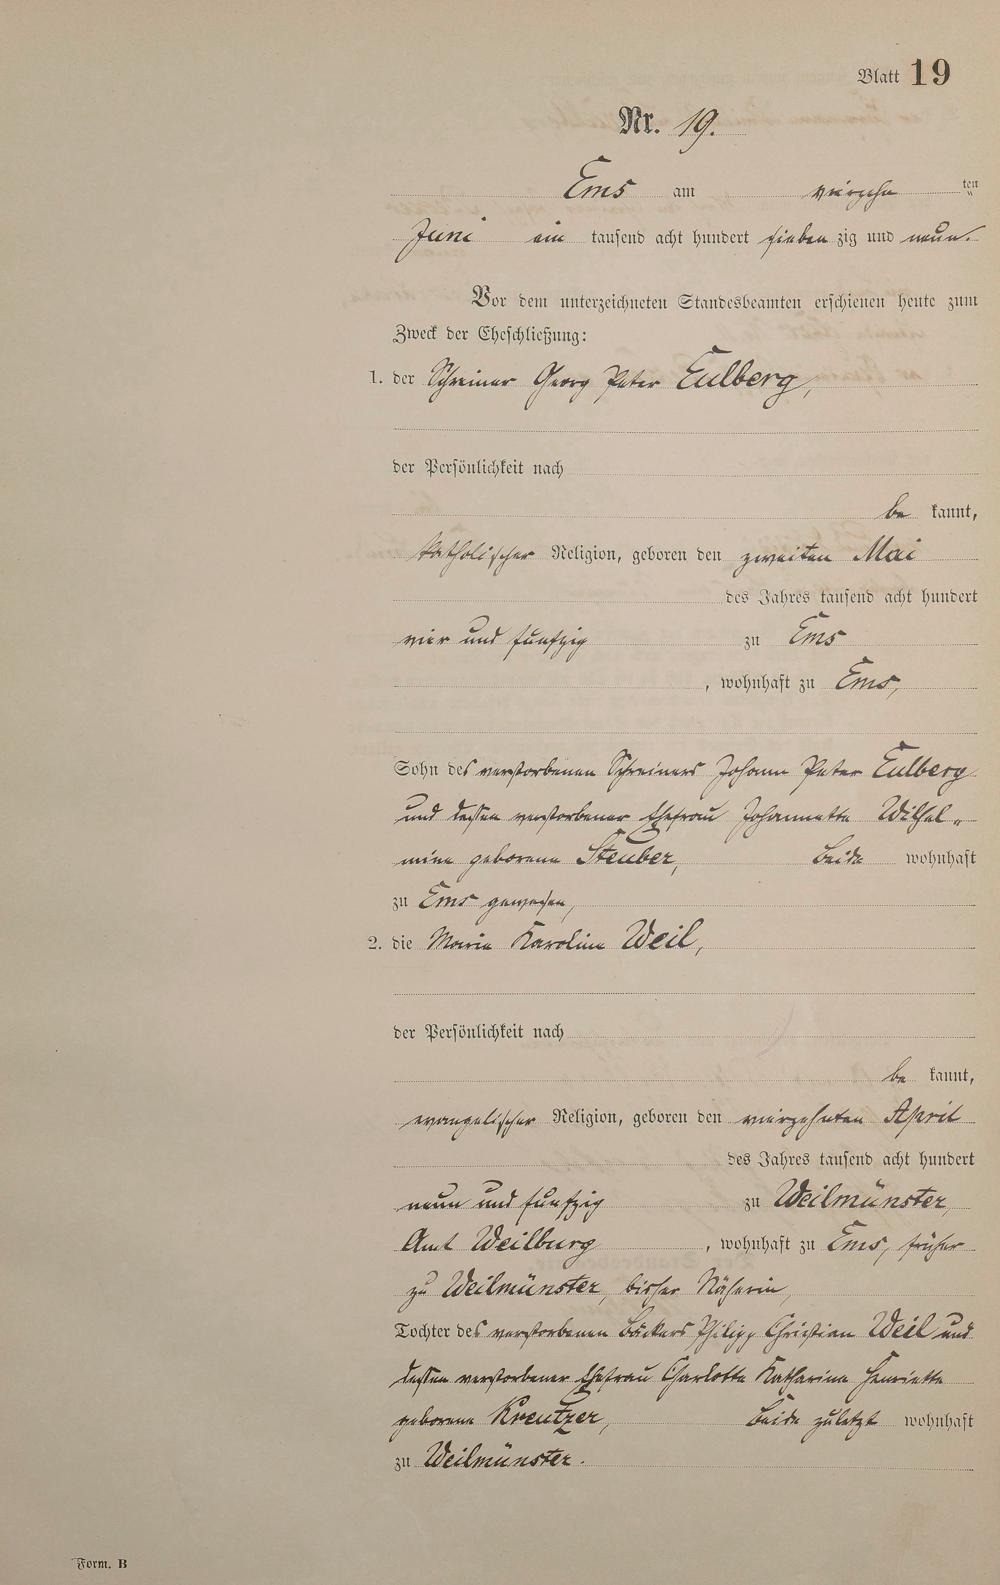 Blatt 19
Nr. 19.
Ems am vierzehn ten
Juni ein tausend acht hundert sieben zig und neun.
Vor dem unterzeichneten Standesbeamten erschienen heute zum
Zweck der Eheschließung:
1. der Schreiner Georg Peter Eulberg,
der Persönlichkeit nach
be kannt,
katholischer Religion, geboren den zweiten Mai
des Jahres tausend acht hundert
vier und funfzig zu Ems
, wohnhaft zu Ems,
Sohn des verstorbenen Schreiners Johann Peter Eulberg
und dessen verstorbener Ehefrau Johannette Wilhel„
mine geborene Steuber, beide wohnhaft
zu Ems gewesen,
2. die Marie Karoline Weil,
der Persönlichkeit nach
be kannt,
evangelischer Religion, geboren den vierzehnten April
des Jahres tausend acht hundert
neun und funfzig zu Weilmünster,
Amt Weilburg , wohnhaft zu Ems, früher
zu Weilmünster, bisher Näherin,
Tochter des verstorbenen Bäckers Philipp Christian Weil und
dessen verstorbener Ehefrau Charlotte Katharine Henriette
geborene Kreutzer, beide zuletzt wohnhaft
zu Weilmünster.
Form. B